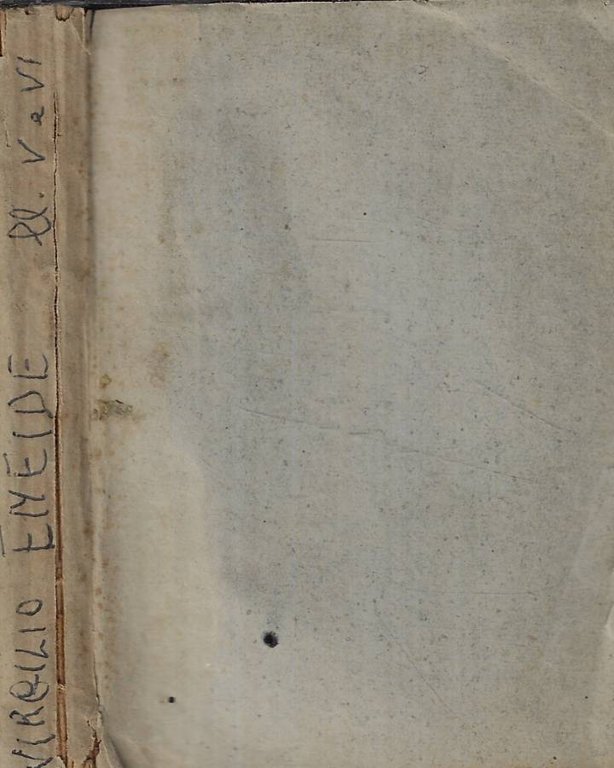 VIRGILIO ENEIDE ll. V e VI